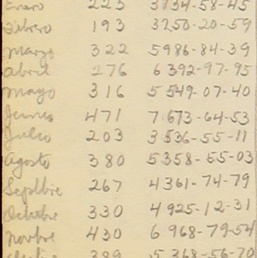 Enero 223 3734-58-45
Febrero 193 3250-20-59
Marzo 322 5986-84-39
abril 276 6392-97-95
mayo 316 5549-07-40
Junio 471 7673-64-53
Julio 203 3536-55-11
Agosto 380 5358-55-03
Septbre 267 4361-74-79
Octubre 330 4925-12-31
Novbre 430 6968-79-54
389 5368-56-70